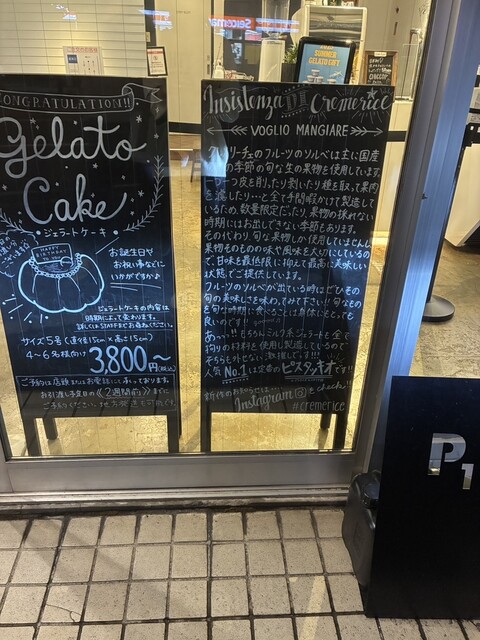 CONGRATULATION!!
Gelato
Cake
・ジェラートケーキ・
HAPPY
BIRTHDAY
お誕生日や
お祝い事などに
いかがですか♪
ジェラートケーキの内容は
時期によって変わります。
詳しくはSTAFFまでお尋ねください。
サイズ5号(直径15cm×高さ15cm)
4〜6名様向け 3,800円〜(税込)
ご予約は店頭またはお電話にて承っております。
お引渡し予定日の《2週間前》までに
ご予約ください。地方発送も可能です。
Insistenza DI Cremerice
VOGLIO MANGIARE
クレメリーチェのフルーツのソルベは主に国産
の季節の旬な生の果物を使用しています。
一つ一つ皮を削いたり剥いたり種を取って果肉
を濾したり…と全て手間暇かけて製造して
いるため、数量限定だったり、果物の採れない
時期にはお出しできない季節もあります。
その代わり、旬な果物しか使用していませんし
果物そのものの味や風味を大切にしているの
で、甘味を最低限に抑えて最高に美味しい
状態でご提供しています。
フルーツのソルベが出ている時はぜひその
旬の美味しさを味わってみて下さい!!旬なもの
を旬な時期に食べることは身体にもとっても
良いのです!!
あっ…!!もちろんミルク系ジェラートも全て
拘りの材料を使用し製造しているので
そちらも外せない勧推しです!!!
人気No.1は定番のピスタッキオです!!
新作のお知らせは…
Instagramをcheck♪!
#cremerice
SUMMER
GELATO GIFT
P1